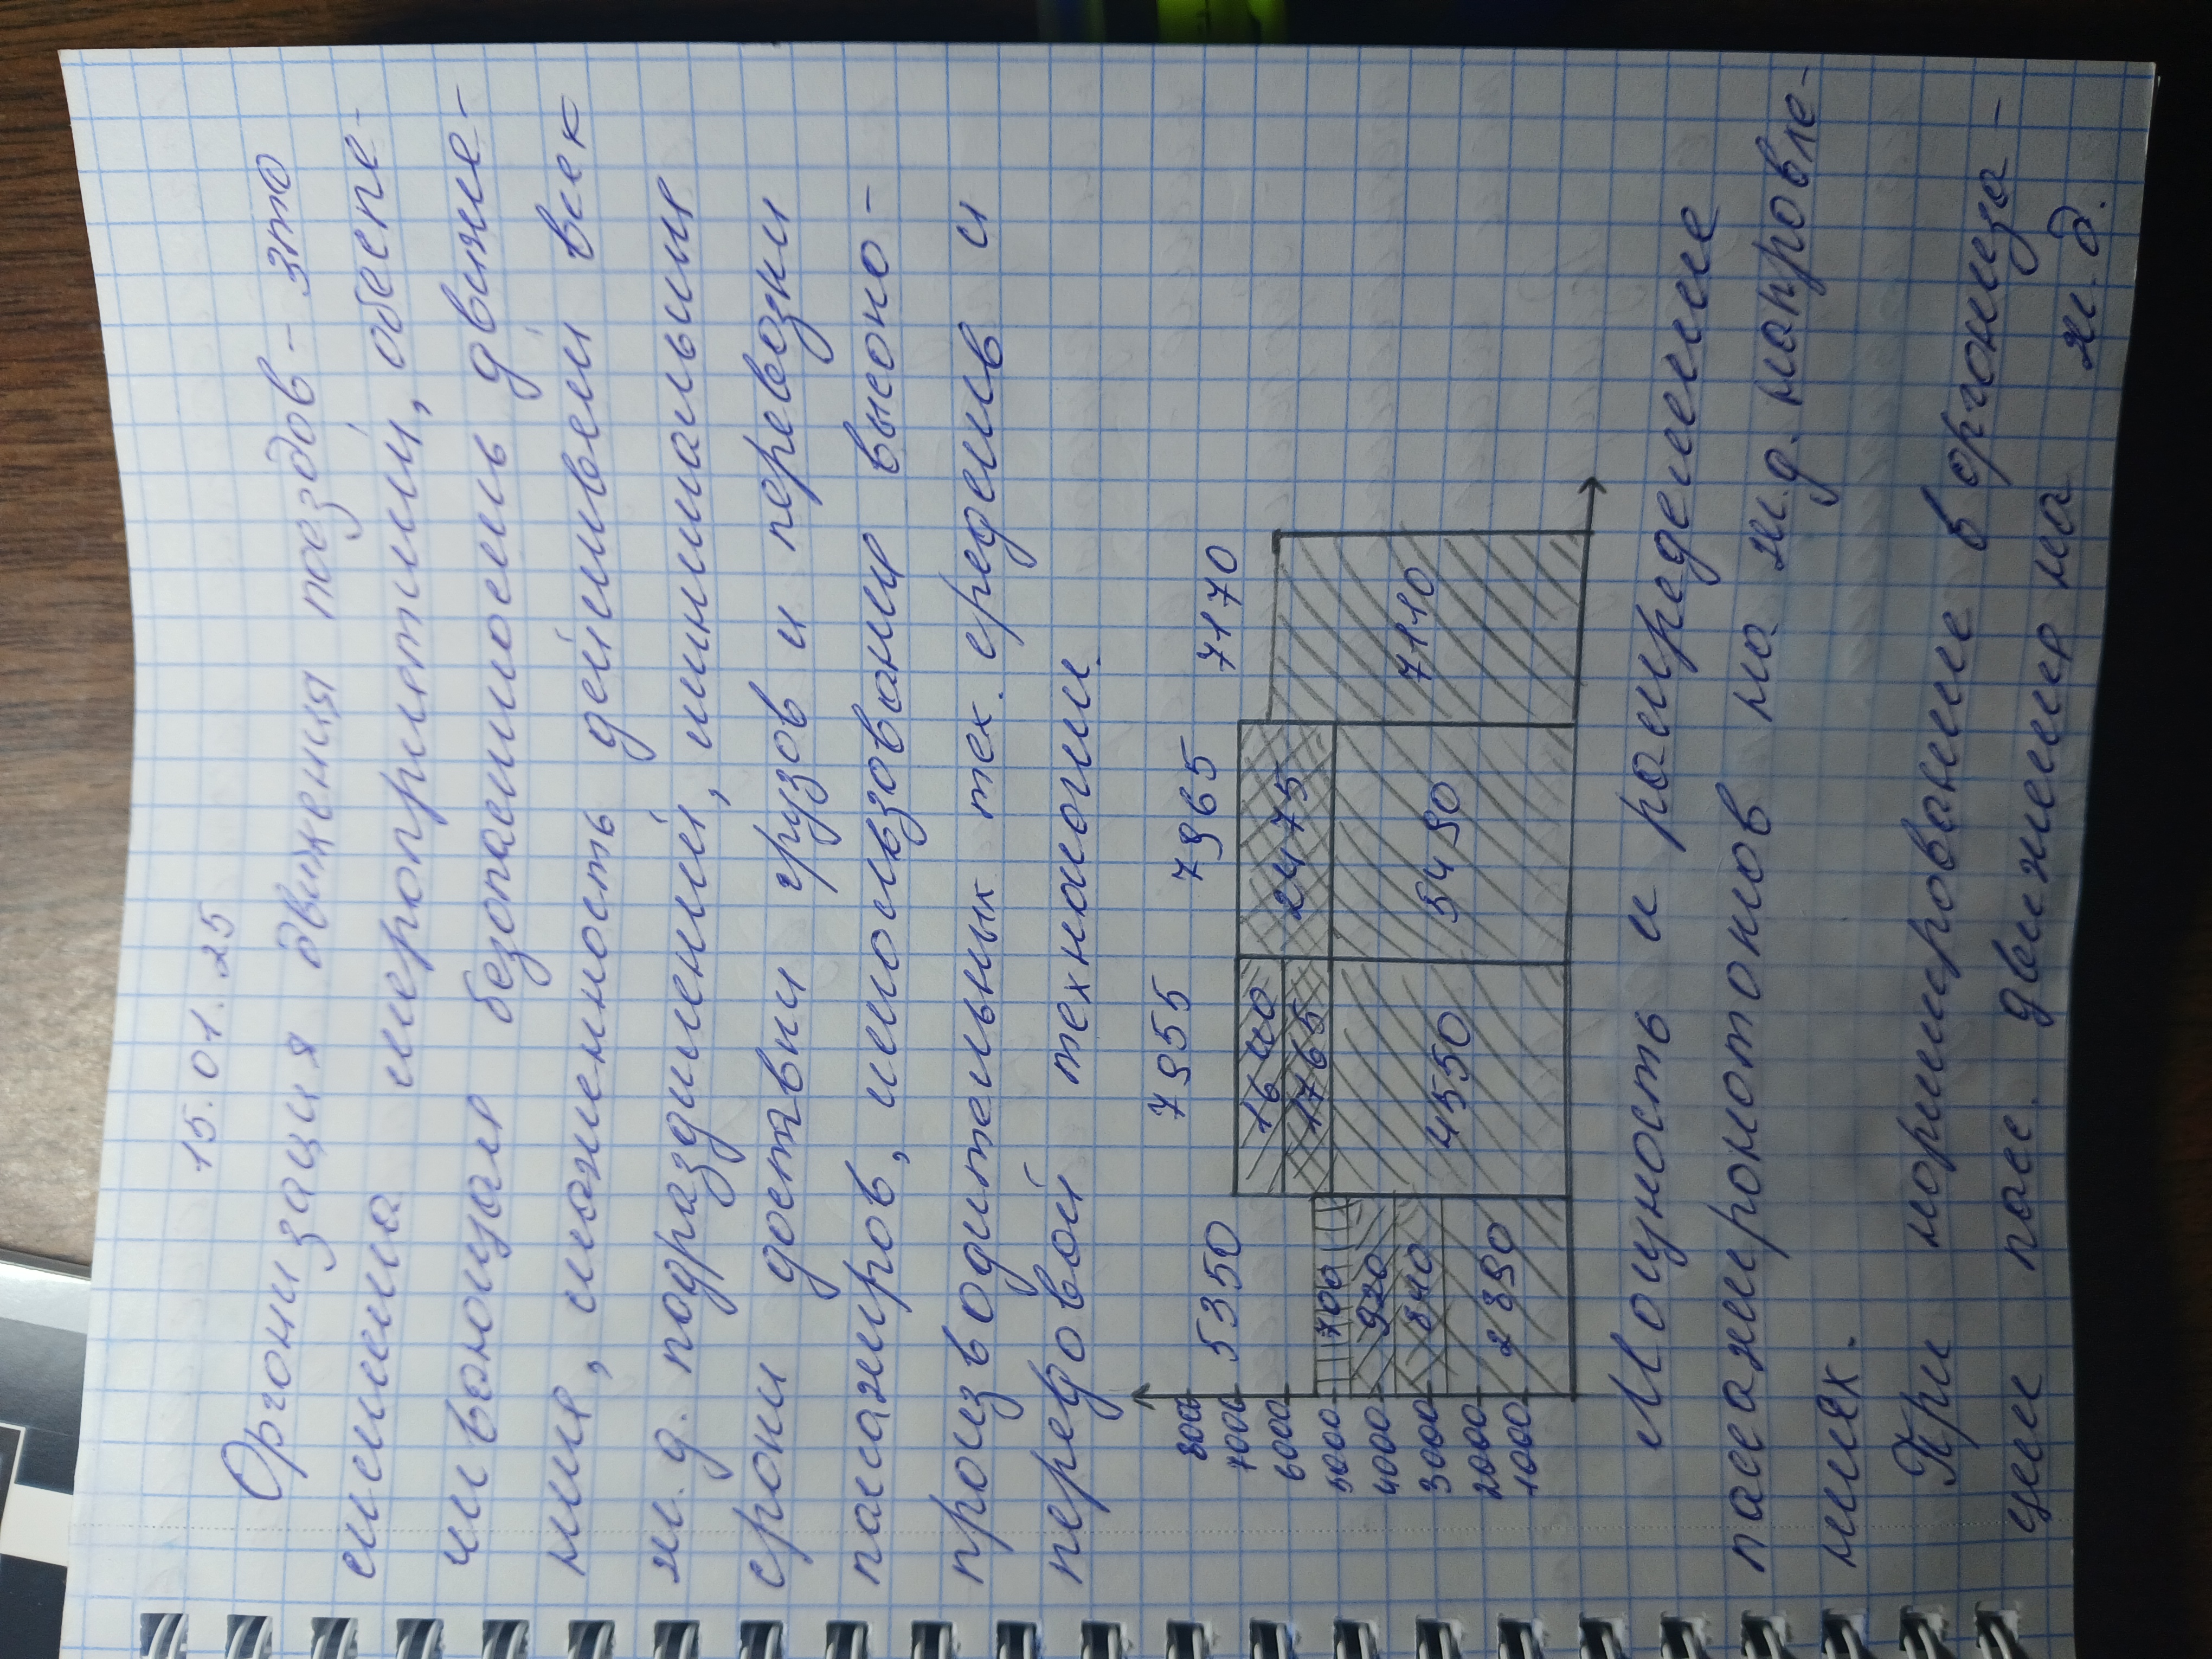 15.01.25
Организация движения поездов - это
система мероприятий, обеспе-
чивающая безопасность движе-
ния, слаженность действвей всех
ж.д. подразделений, минимальныя
сроки доставки грузов и перевозки
пасажиров, использования высоко-
производительных тех. средств и
передовой технологии.
5350 7955 7965 7170
8000
7000
6000
5000
4000
3000
2000
1000
700
920
840
2890
1640
1765
4550
2475
5490
7110
Мощность и распределение
пассажиропотоков на ж.д. направле-
ниях.
При нормировании в организа-
ции пасс. движения на ж.д.